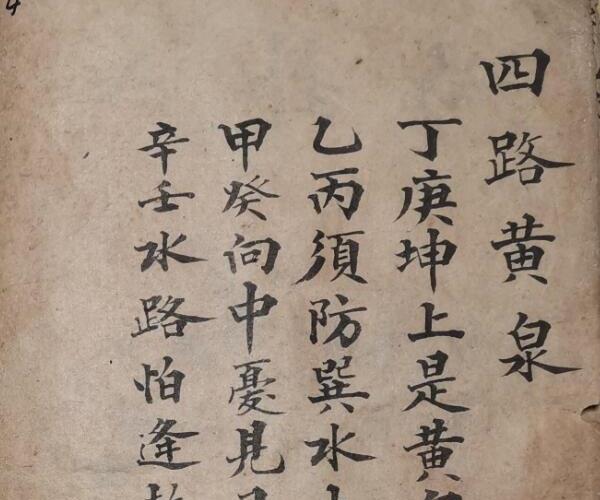 四路黄泉
丁庚坤上是黄
乙丙須防巽水
甲癸向中憂見
辛壬水路怕逢